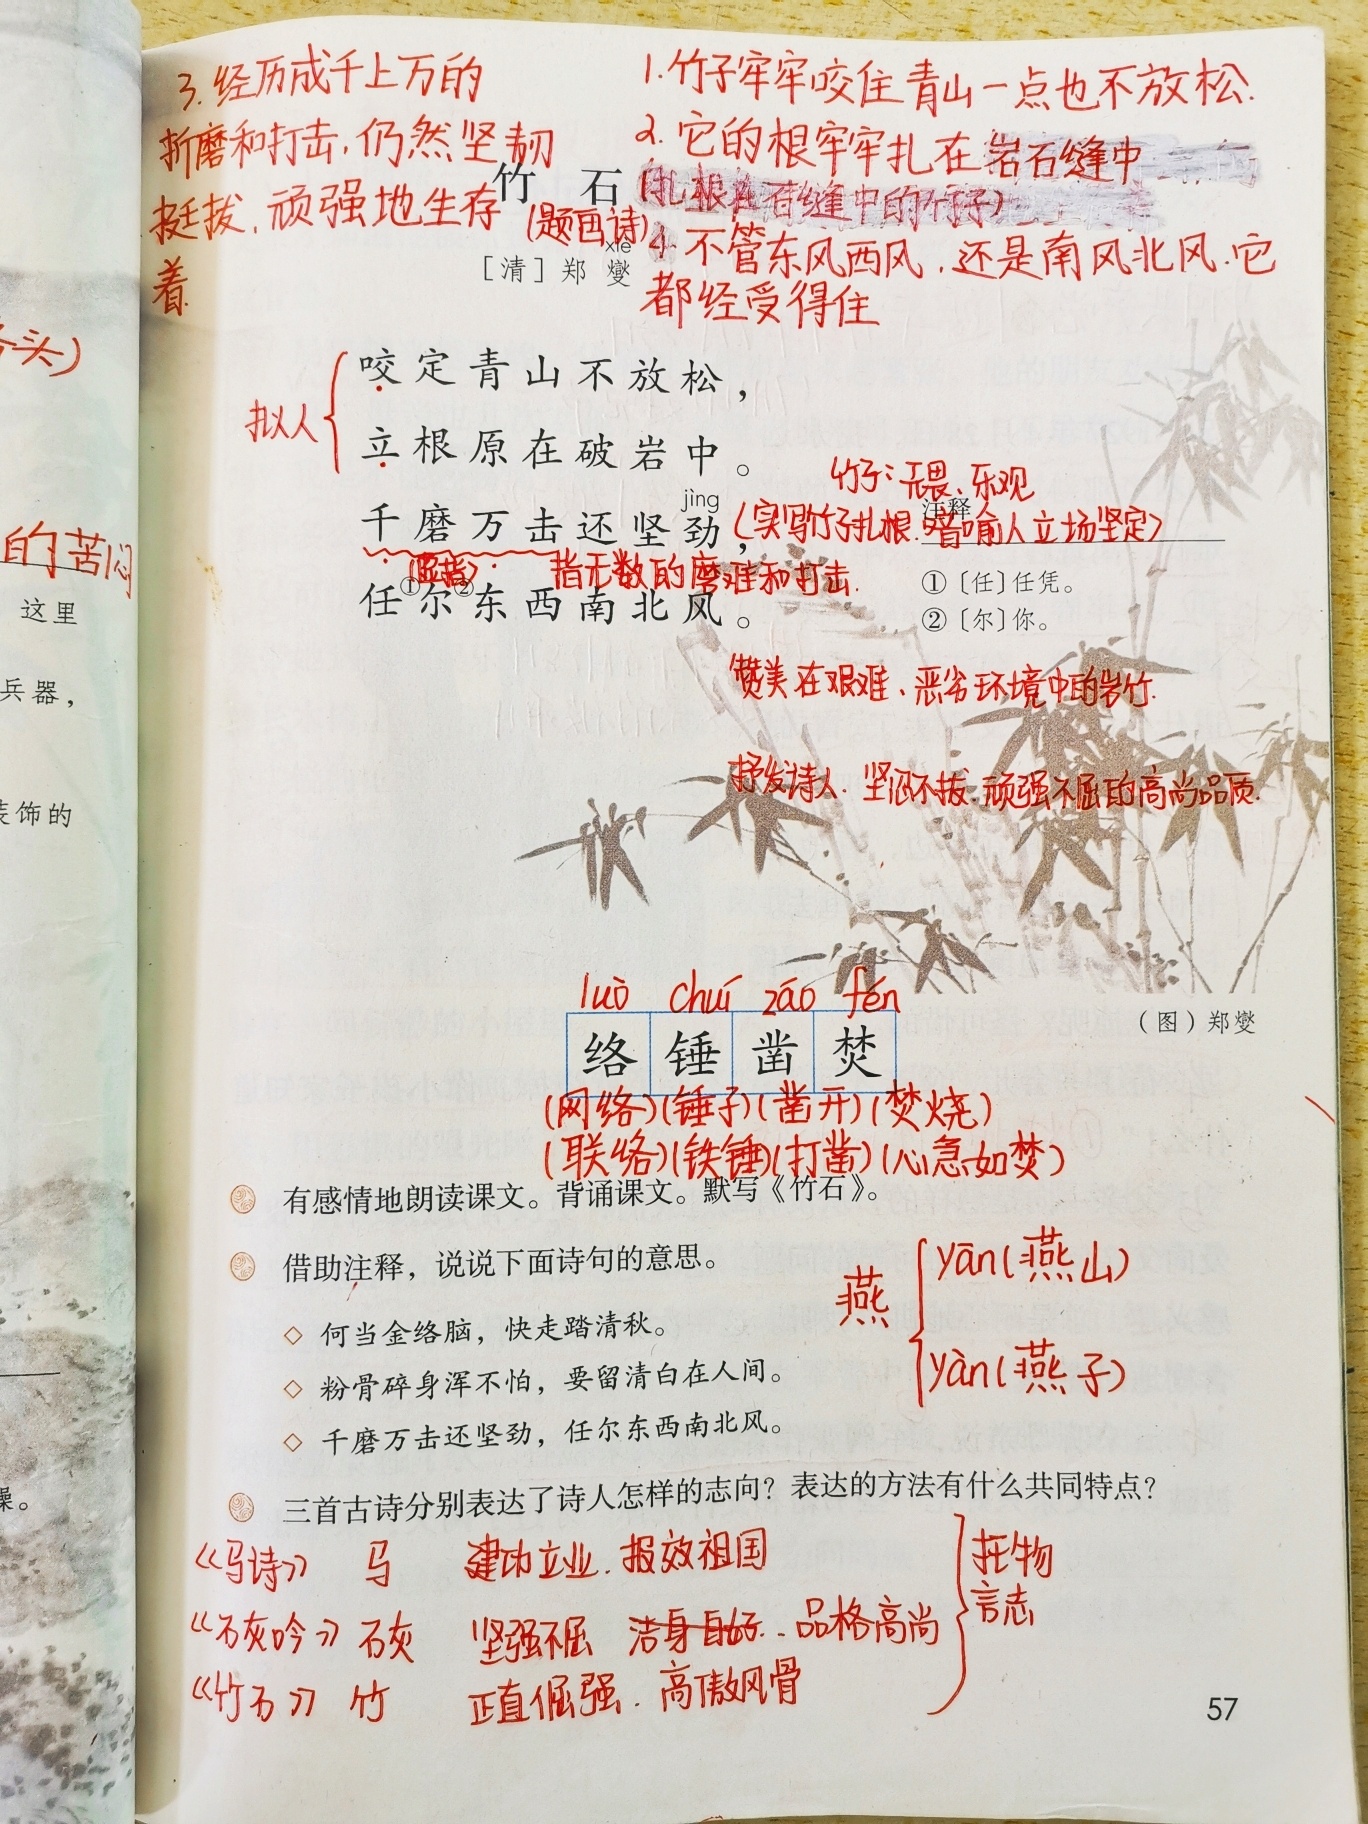 3. 经历成千上万的
折磨和打击,仍然坚韧
挺拔,顽强地生存
着.
1. 竹子牢牢咬住青山一点也不放松.
2. 它的根牢牢扎在岩石缝中
(扎根在石缝中的竹子)
4. 不管东风西风,还是南风北风.它
都经受得住
竹 石
(题画诗)
xiè
[清]郑 燮
拟人
咬定青山不放松，
立根原在破岩中。
竹子:无畏、乐观
jìng
千磨万击还坚劲，
(实写竹子扎根.暗喻人立场坚定)
注释
指无数的磨难和打击.
任①尔②东西南北风。
①〔任〕任凭。
②〔尔〕你。
赞美在艰难、恶劣环境中的岩竹.
抒发诗人.坚忍不拔.顽强不屈的高尚品质.
(图)郑燮
luò chuí záo fén
络 锤 凿 焚
(网络)(锤子)(凿开)(焚烧)
(联络)(铁锤)(打凿)(心急如焚)
有感情地朗读课文。背诵课文。默写《竹石》。
借助注释，说说下面诗句的意思。
◇ 何当金络脑，快走踏清秋。
◇ 粉骨碎身浑不怕，要留清白在人间。
◇ 千磨万击还坚劲，任尔东西南北风。
燕
yān(燕山)
yàn(燕子)
三首古诗分别表达了诗人怎样的志向？表达的方法有什么共同特点？
《马诗》 马 建功立业.报效祖国
《石灰吟》 石灰 坚强不屈 洁身自好..品格高尚
《竹石》 竹 正直倔强.高傲风骨
托物
言志
57
头)
的苦闷
这里
兵器，
装饰的
燥。